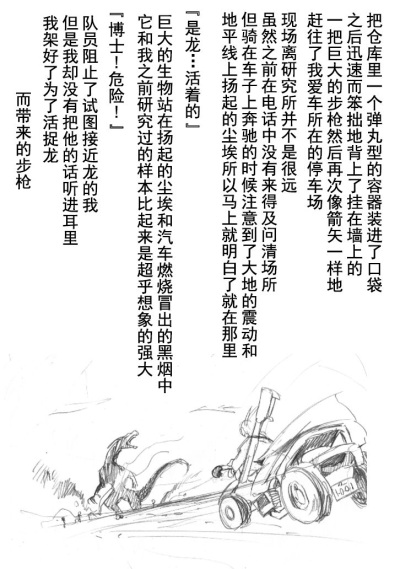 把仓库里一个弹丸型的容器装进了口袋
之后迅速而笨拙地背上了挂在墙上的
一把巨大的步枪然后再次像箭矢一样地
赶往了我爱车所在的停车场
现场离研究所并不是很远
虽然之前在电话中没有来得及问清场所
但骑在车子上奔驰的时候注意到了大地的震动和
地平线上扬起的尘埃所以马上就明白了就在那里
『是龙…活着的』
巨大的生物站在扬起的尘埃和汽车燃烧冒出的黑烟中
它和我之前研究过的样本比起来是超乎想象的强大
『博士！危险！』
队员阻止了试图接近龙的我
但是我却没有把他的话听进耳里
我架好了为了活捉龙
而带来的步枪